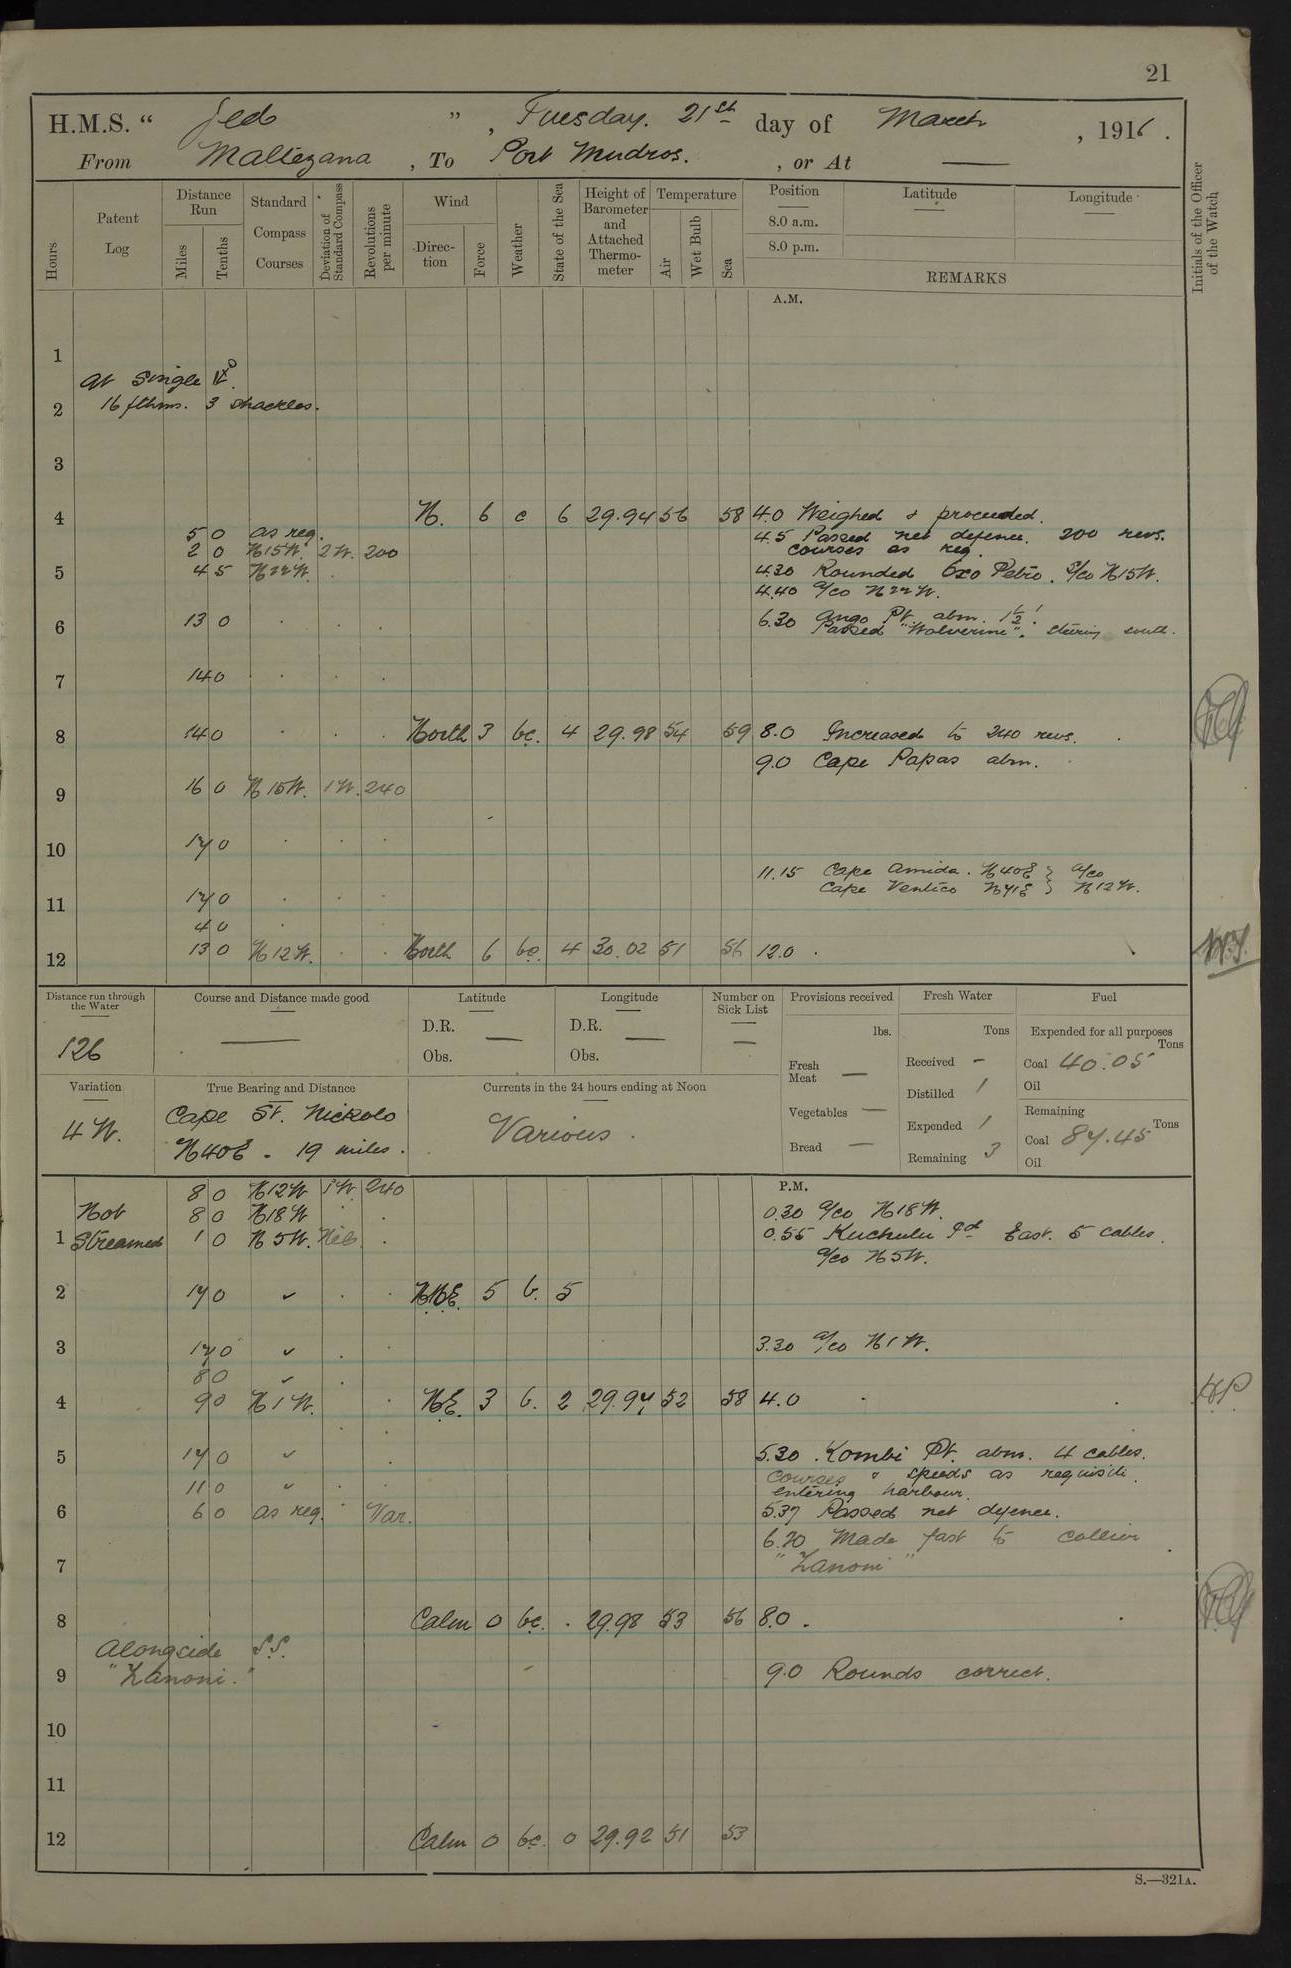 21
H.M.S. “ Jed ” , Tuesday. 21st day of March , 1916 .
From Maltezana , To Port Mudros. , or At —
Hours
Patent Log
Distance Run
Miles
Tenths
Standard Compass Courses
Deviation of Standard Compass
Revolutions per minute
Wind
Direc- tion
Force
Weather
State of the Sea
Height of Barometer and Attached Thermo- meter
Temperature
Air
Wet Bulb
Sea
Position
Latitude
Longitude
8.0 a.m.
8.0 p.m.
REMARKS
Initials of the Officer of the Watch
A.M.
1
at single
2 16 fthms. 3 shackles.
3
4 N. 6 c 6 29.94 56 58 4.0 Weighed & proceeded.
5 0 as req. 4.5 Passed net defence. 200 revs.
2 0 N15W. 2W. 200 courses as req.
5 4 5 N22W. 4.30 Rounded Exo Petro. a/co N15W.
4.40 a/co N22W.
6 13 0 6.30 Pt. abm. 1½'.
Passed "Wolverine". steering south.
7 14 0
8 14 0 North 3 bc. 4 29.98 54 59 8.0 Increased to 240 revs.
9.0 Cape Papas abm.
9 16 0 N15W. 1W. 240
10 17 0
11.15 Cape Amida. N40E } a/co
11 17 0 Cape Ventico N71E } N12W.
4 0
12 13 0 N12W. North 6 bc. 4 30.02 51 56 12.0
Distance run through the Water
126
Course and Distance made good
—
Latitude
D.R. —
Obs.
Longitude
D.R. —
Obs.
Number on Sick List
—
Provisions received
lbs.
Fresh Meat —
Vegetables —
Bread —
Fresh Water
Tons
Received –
Distilled 1
Expended 1
Remaining 3
Fuel
Expended for all purposes
Tons
Coal 40.05
Oil
Remaining
Tons
Coal 87.45
Oil
Variation
4 W.
True Bearing and Distance
Cape St. Nickolo
N40E. 19 miles.
Currents in the 24 hours ending at Noon
Various.
P.M.
8 0 N12W 1W. 240
Not 8 0 N18W 0.30 a/co N18W.
1 Streamed 1 0 N5W. Nil. 0.55 Kuchulu Id East. 5 cables.
a/co N5W.
2 17 0 ✓ NNE. 5 b. 5
3 17 0 ✓ 3.30 a/co N1W.
8 0 ✓
4 9 0 N1W. NE. 3 b. 2 29.97 52 58 4.0
5 17 0 ✓ 5.30 Kombi Pt. abm. 4 cables.
11 0 ✓ Courses & speeds as requisite.
entering harbour.
6 6 0 as req. Var. 5.37 Passed net defence.
6.20 Made fast to collier
7 "Zanoni"
8 Calm 0 bc. . 29.98 53 56 8.0
Alongside S.S.
9 "Zanoni." 9.0 Rounds correct.
10
11
12 Calm 0 bc. 0 29.92 51 53
S.—321A.